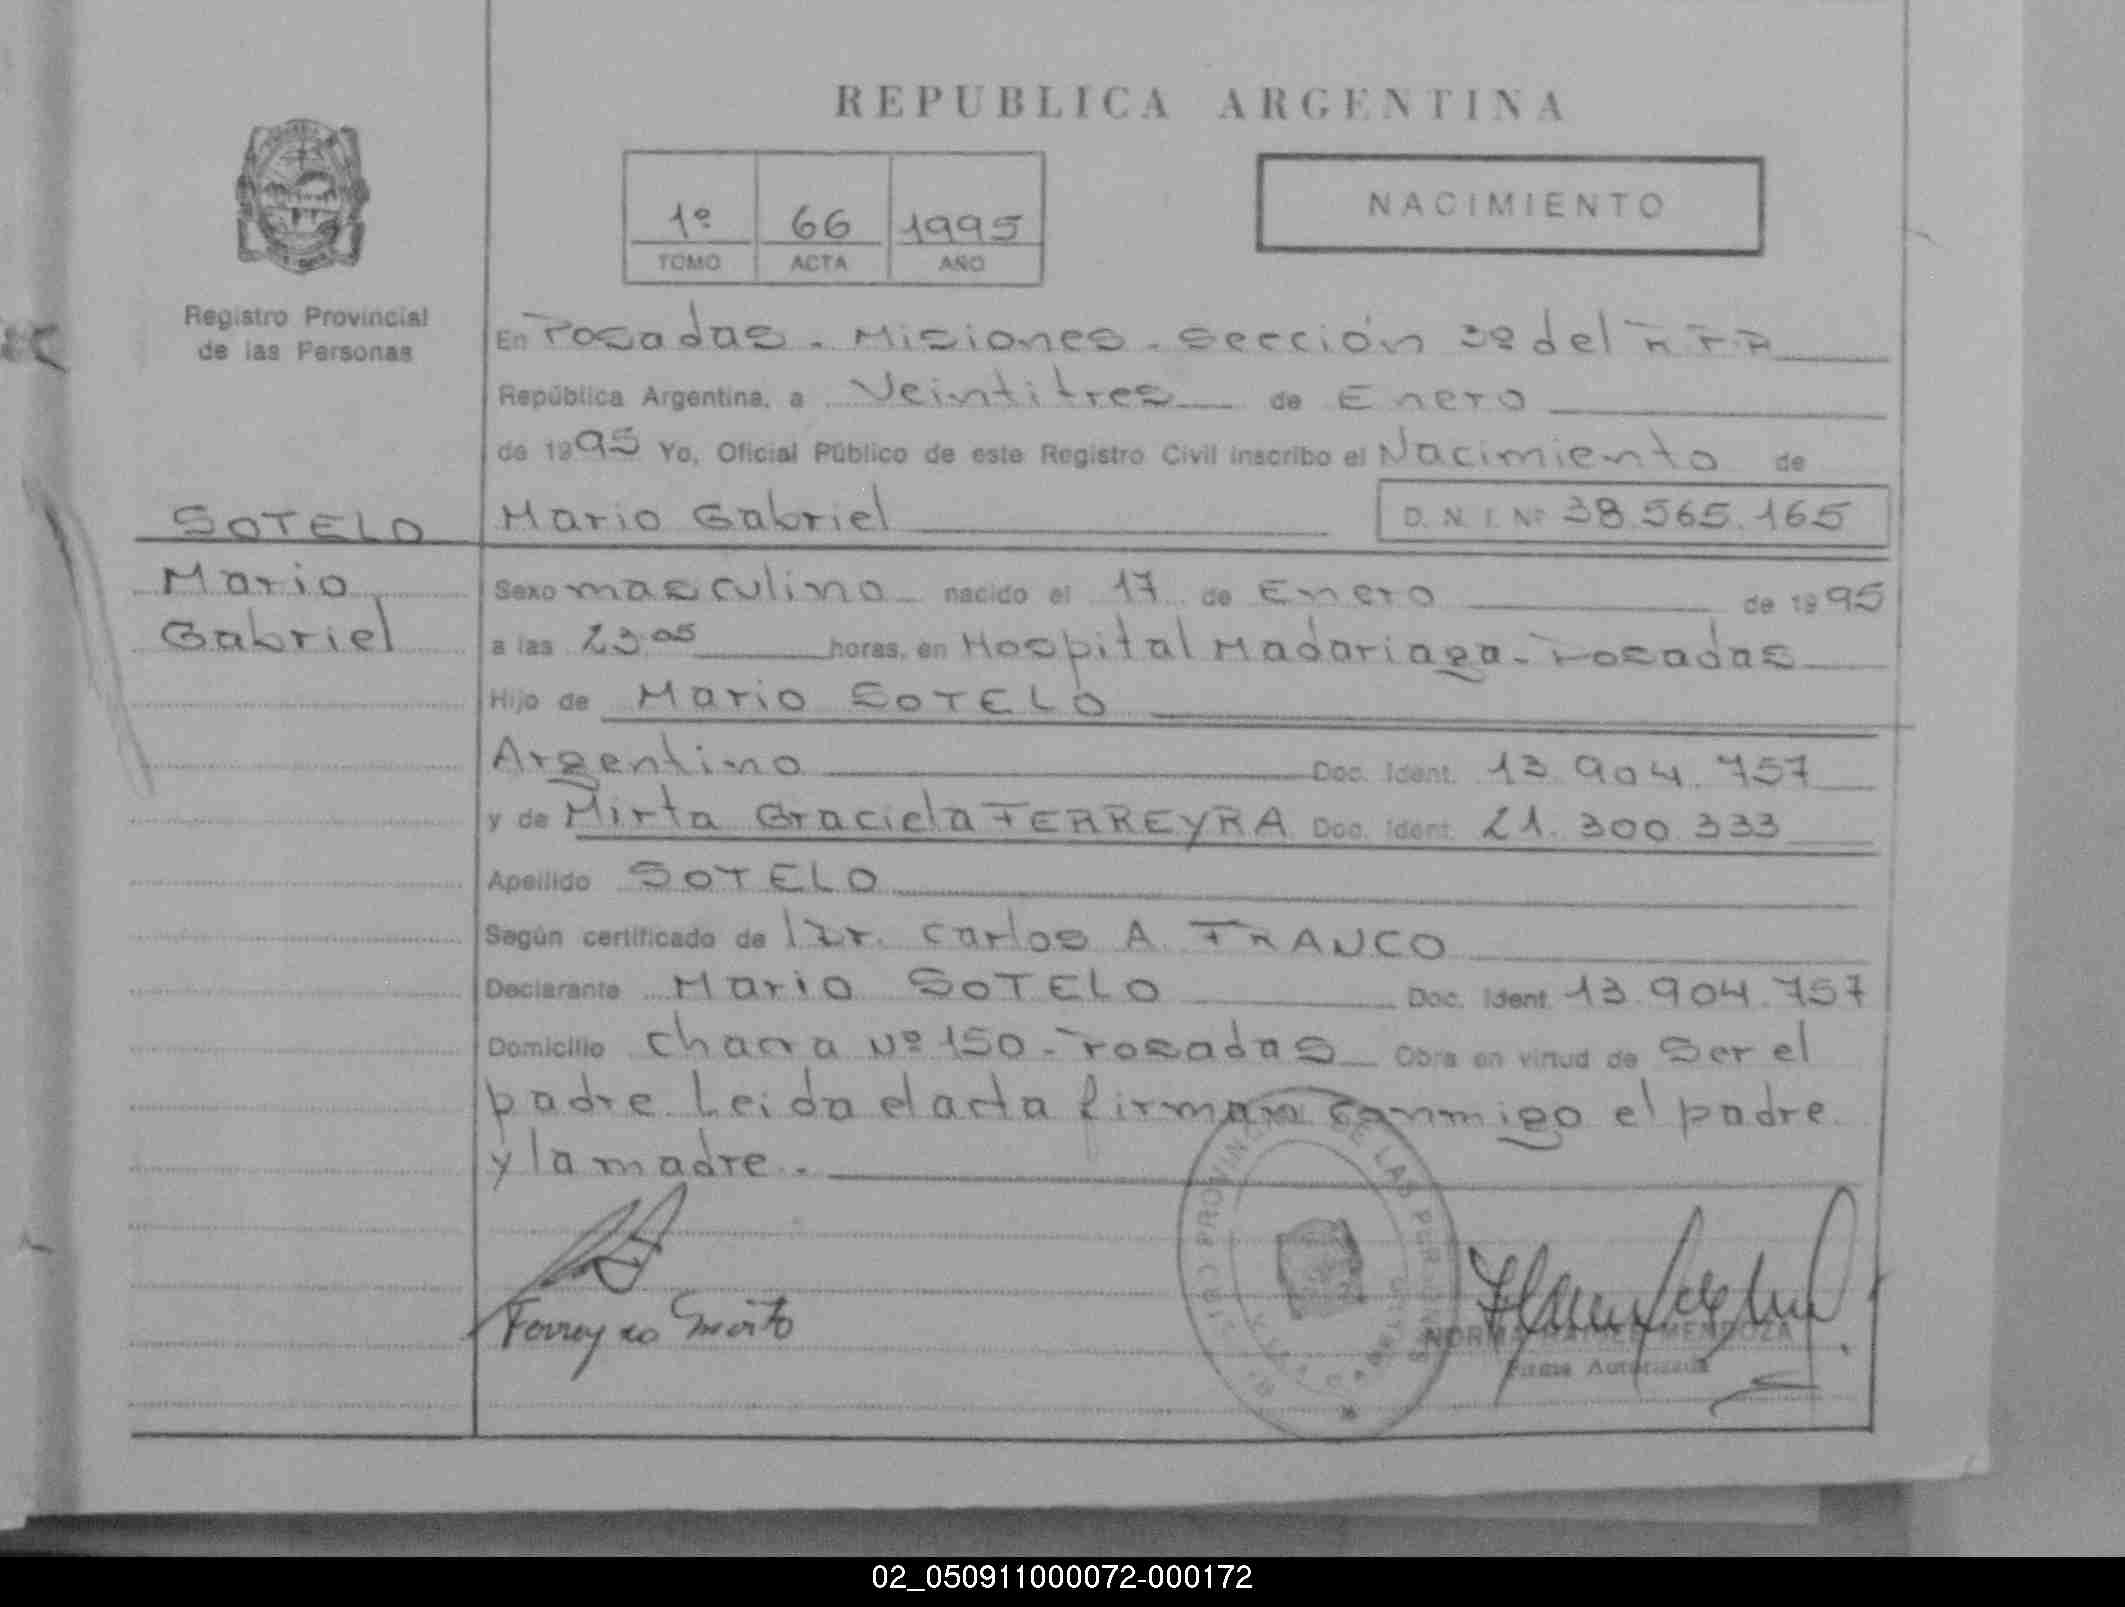 REPUBLICA ARGENTINA
1º 66 1995
TOMO ACTA AÑO
NACIMIENTO
Registro Provincial
de las Personas
En Posadas - Misiones - Sección 3º del R.P.P.
República Argentina, a Veintitres de Enero
de 1995 Yo, Oficial Público de este Registro Civil inscribo el Nacimiento de
SOTELO
Mario
Gabriel
Mario Gabriel D. N. I. Nº 38.565.165
Sexo masculino nacido el 17 de Enero de 1995
a las 23.05 horas, en Hospital Madariaga - Posadas
Hijo de Mario SOTELO
Argentino Doc. Ident. 13.904.757
y de Mirta Graciela FERREYRA Doc. Ident. 21.300.333
Apellido SOTELO
Según certificado de Dr. Carlos A. FRANCO
Declarante Mario SOTELO Doc. Ident. 13.904.757
Domicilio Chacra Nº 150 - Posadas Obra en virtud de Ser el
padre. Leida el acta firman conmigo el padre
y la madre.
Ferreyra
REGISTRO PROVINCIAL DE LAS PERSONAS
NORMA MENDOZA
Firma Autorizada
02_050911000072-000172